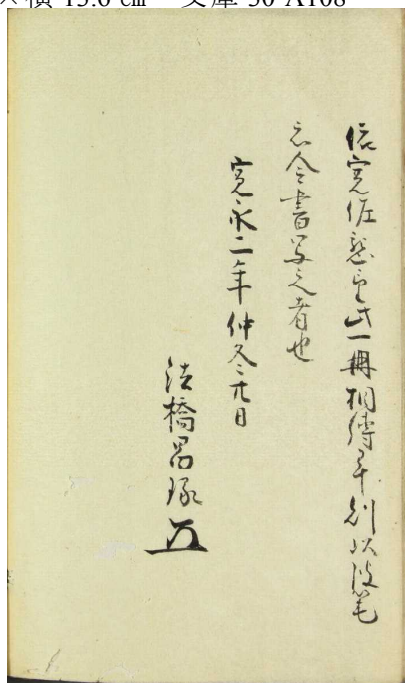 ×横 13.6 cm 文庫 30-A108
信寛依懇望此一冊相傳畢則以彼笔
令書写之者也
寛永二年仲冬二十日
法橋昌琢